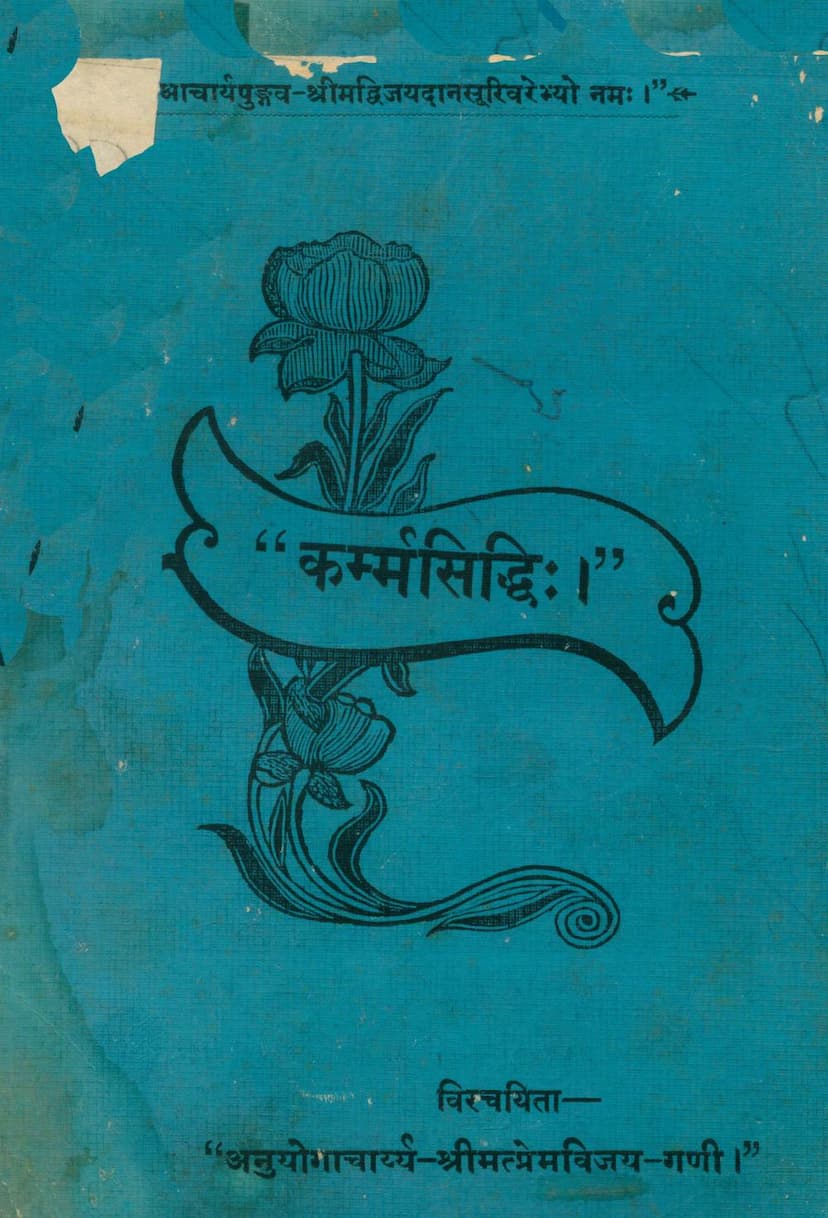 आचार्यपुङ्गव-श्रीमद्विजयदानसूरिवरेभ्यो नमः।”
“कर्म्मसिद्धिः।”
विरचयिता—
“अनुयोगाचार्य्य-श्रीमत्प्रेमविजय-गणी।”